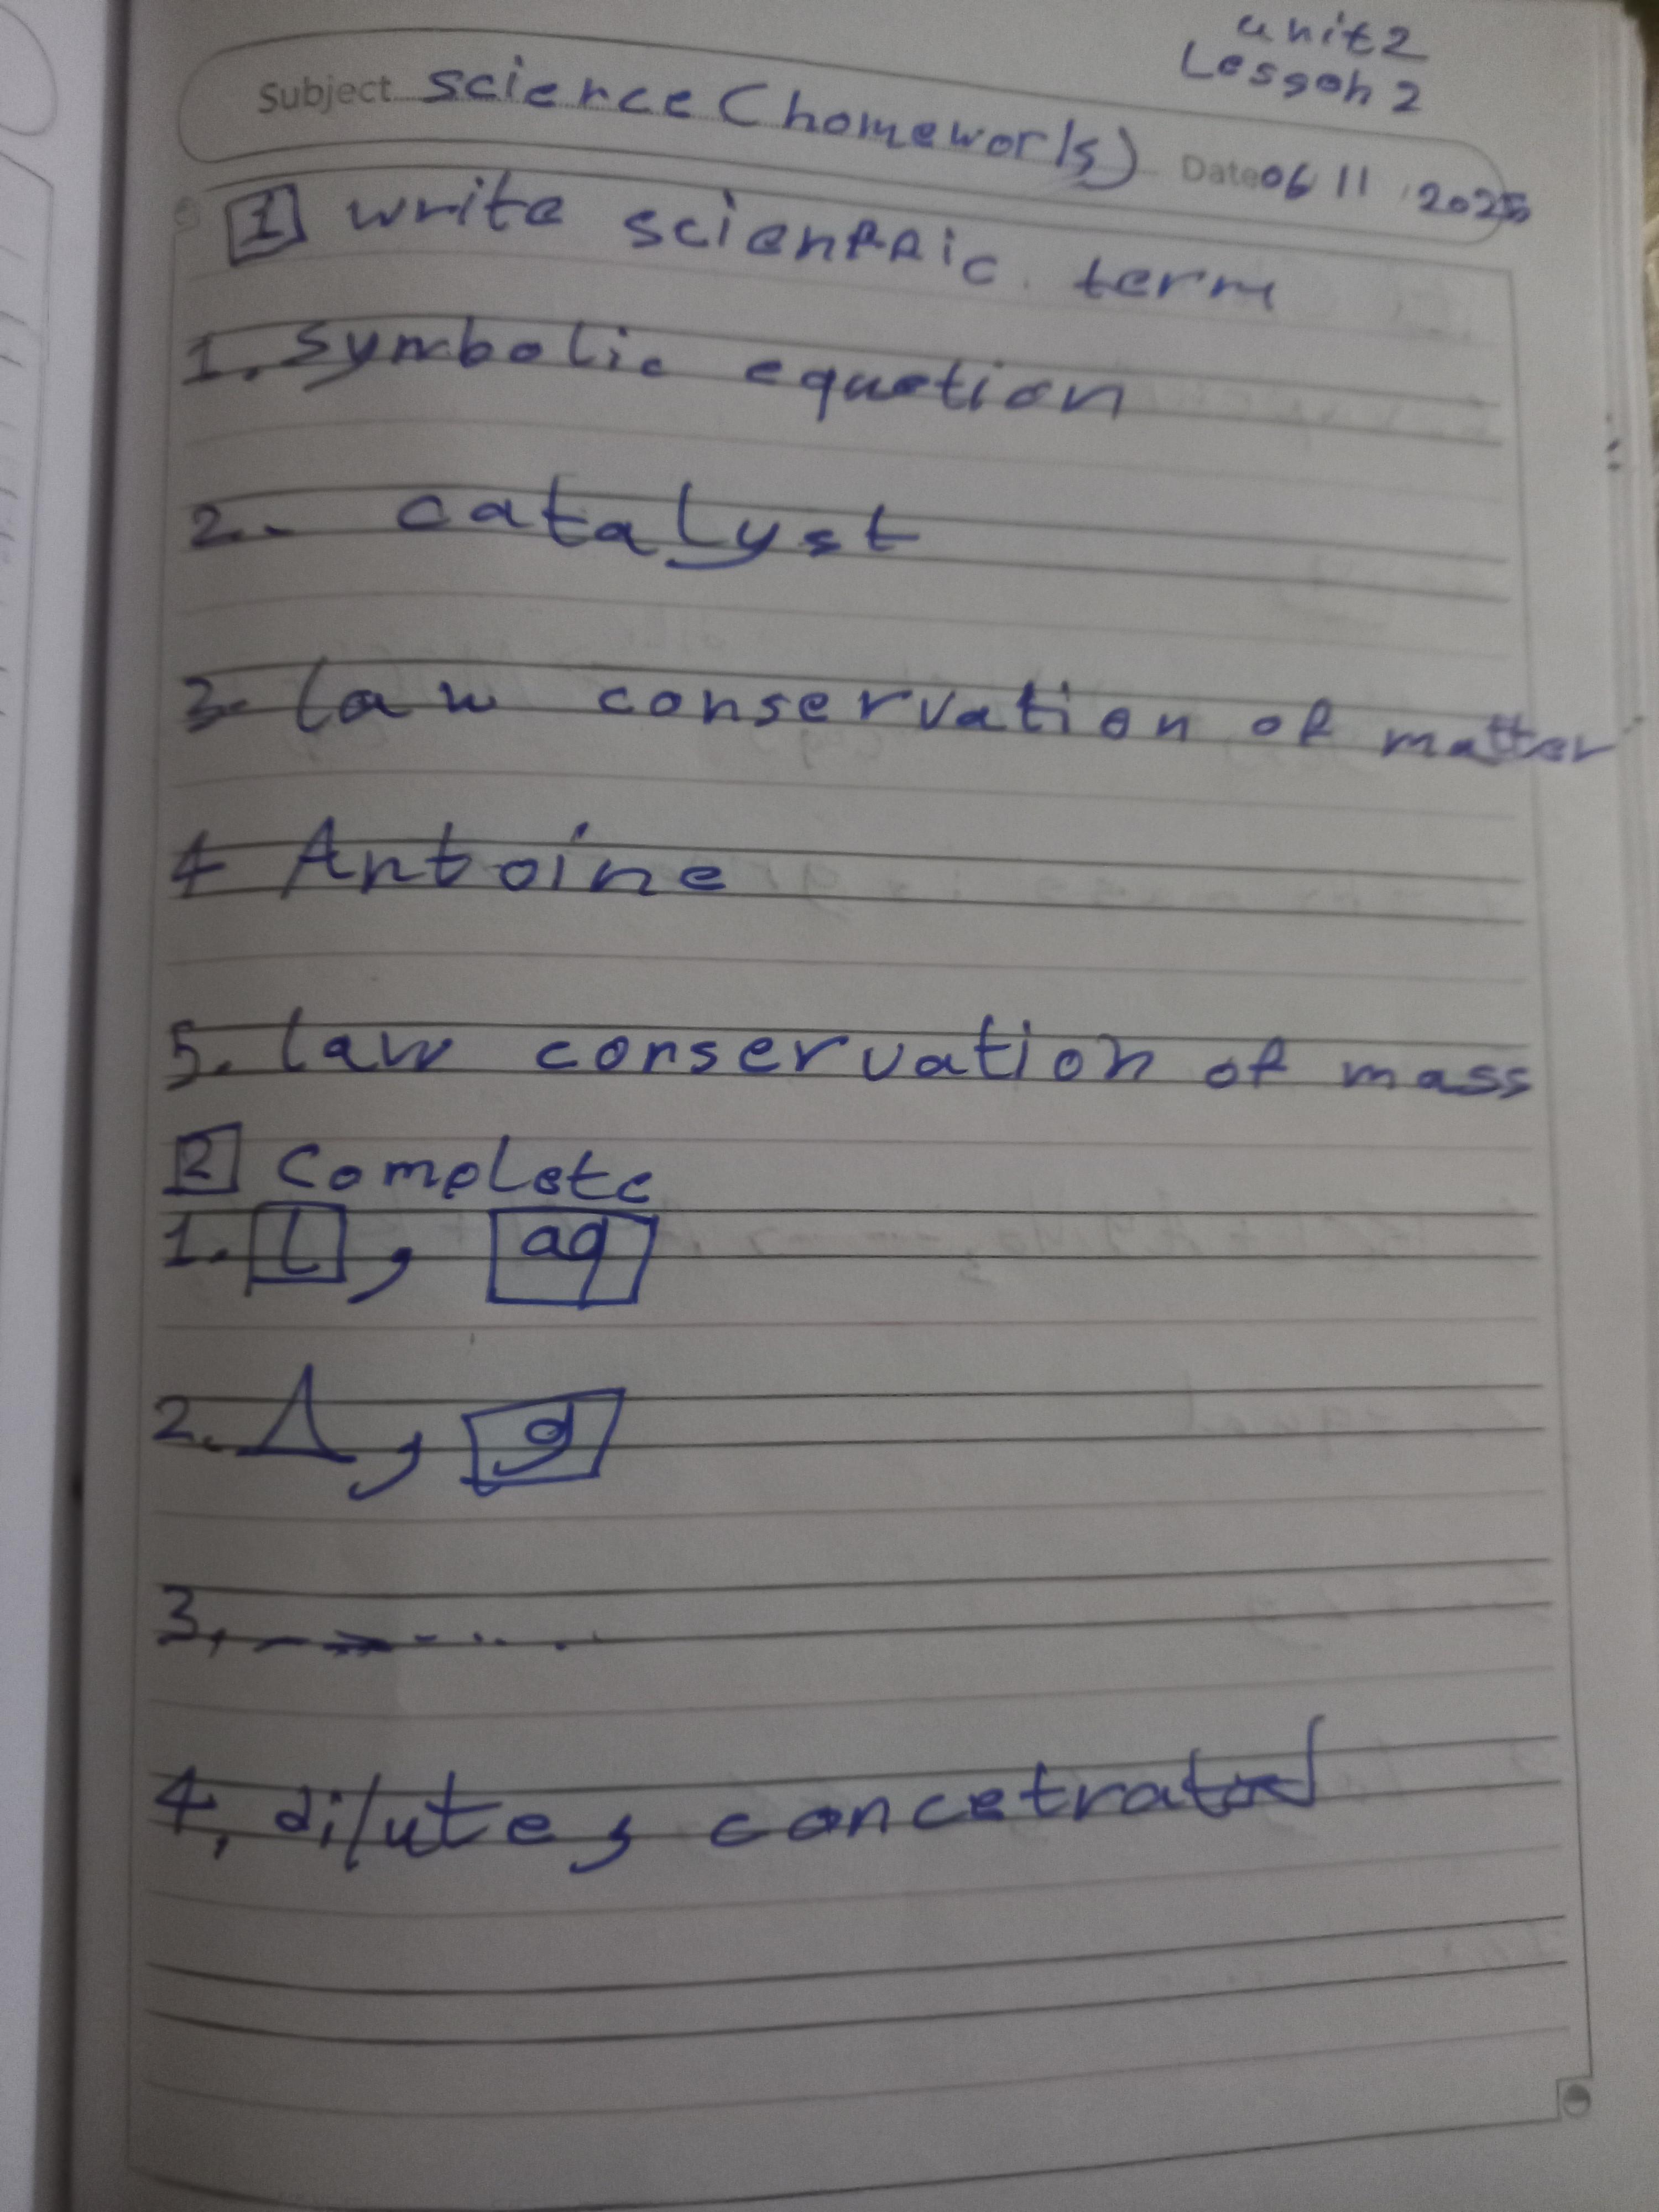 unit 2
Lesson 2
Subject science (homework)
Date 06 11 2025
1 write scienffic term
1. Symbolic equation
2. catalyst
3. law conservation of matter
4 Antoine
5. law conservation of mass
2 Complete
1. l , aq
2. Δ , g
3. →
4. dilute , concetrated